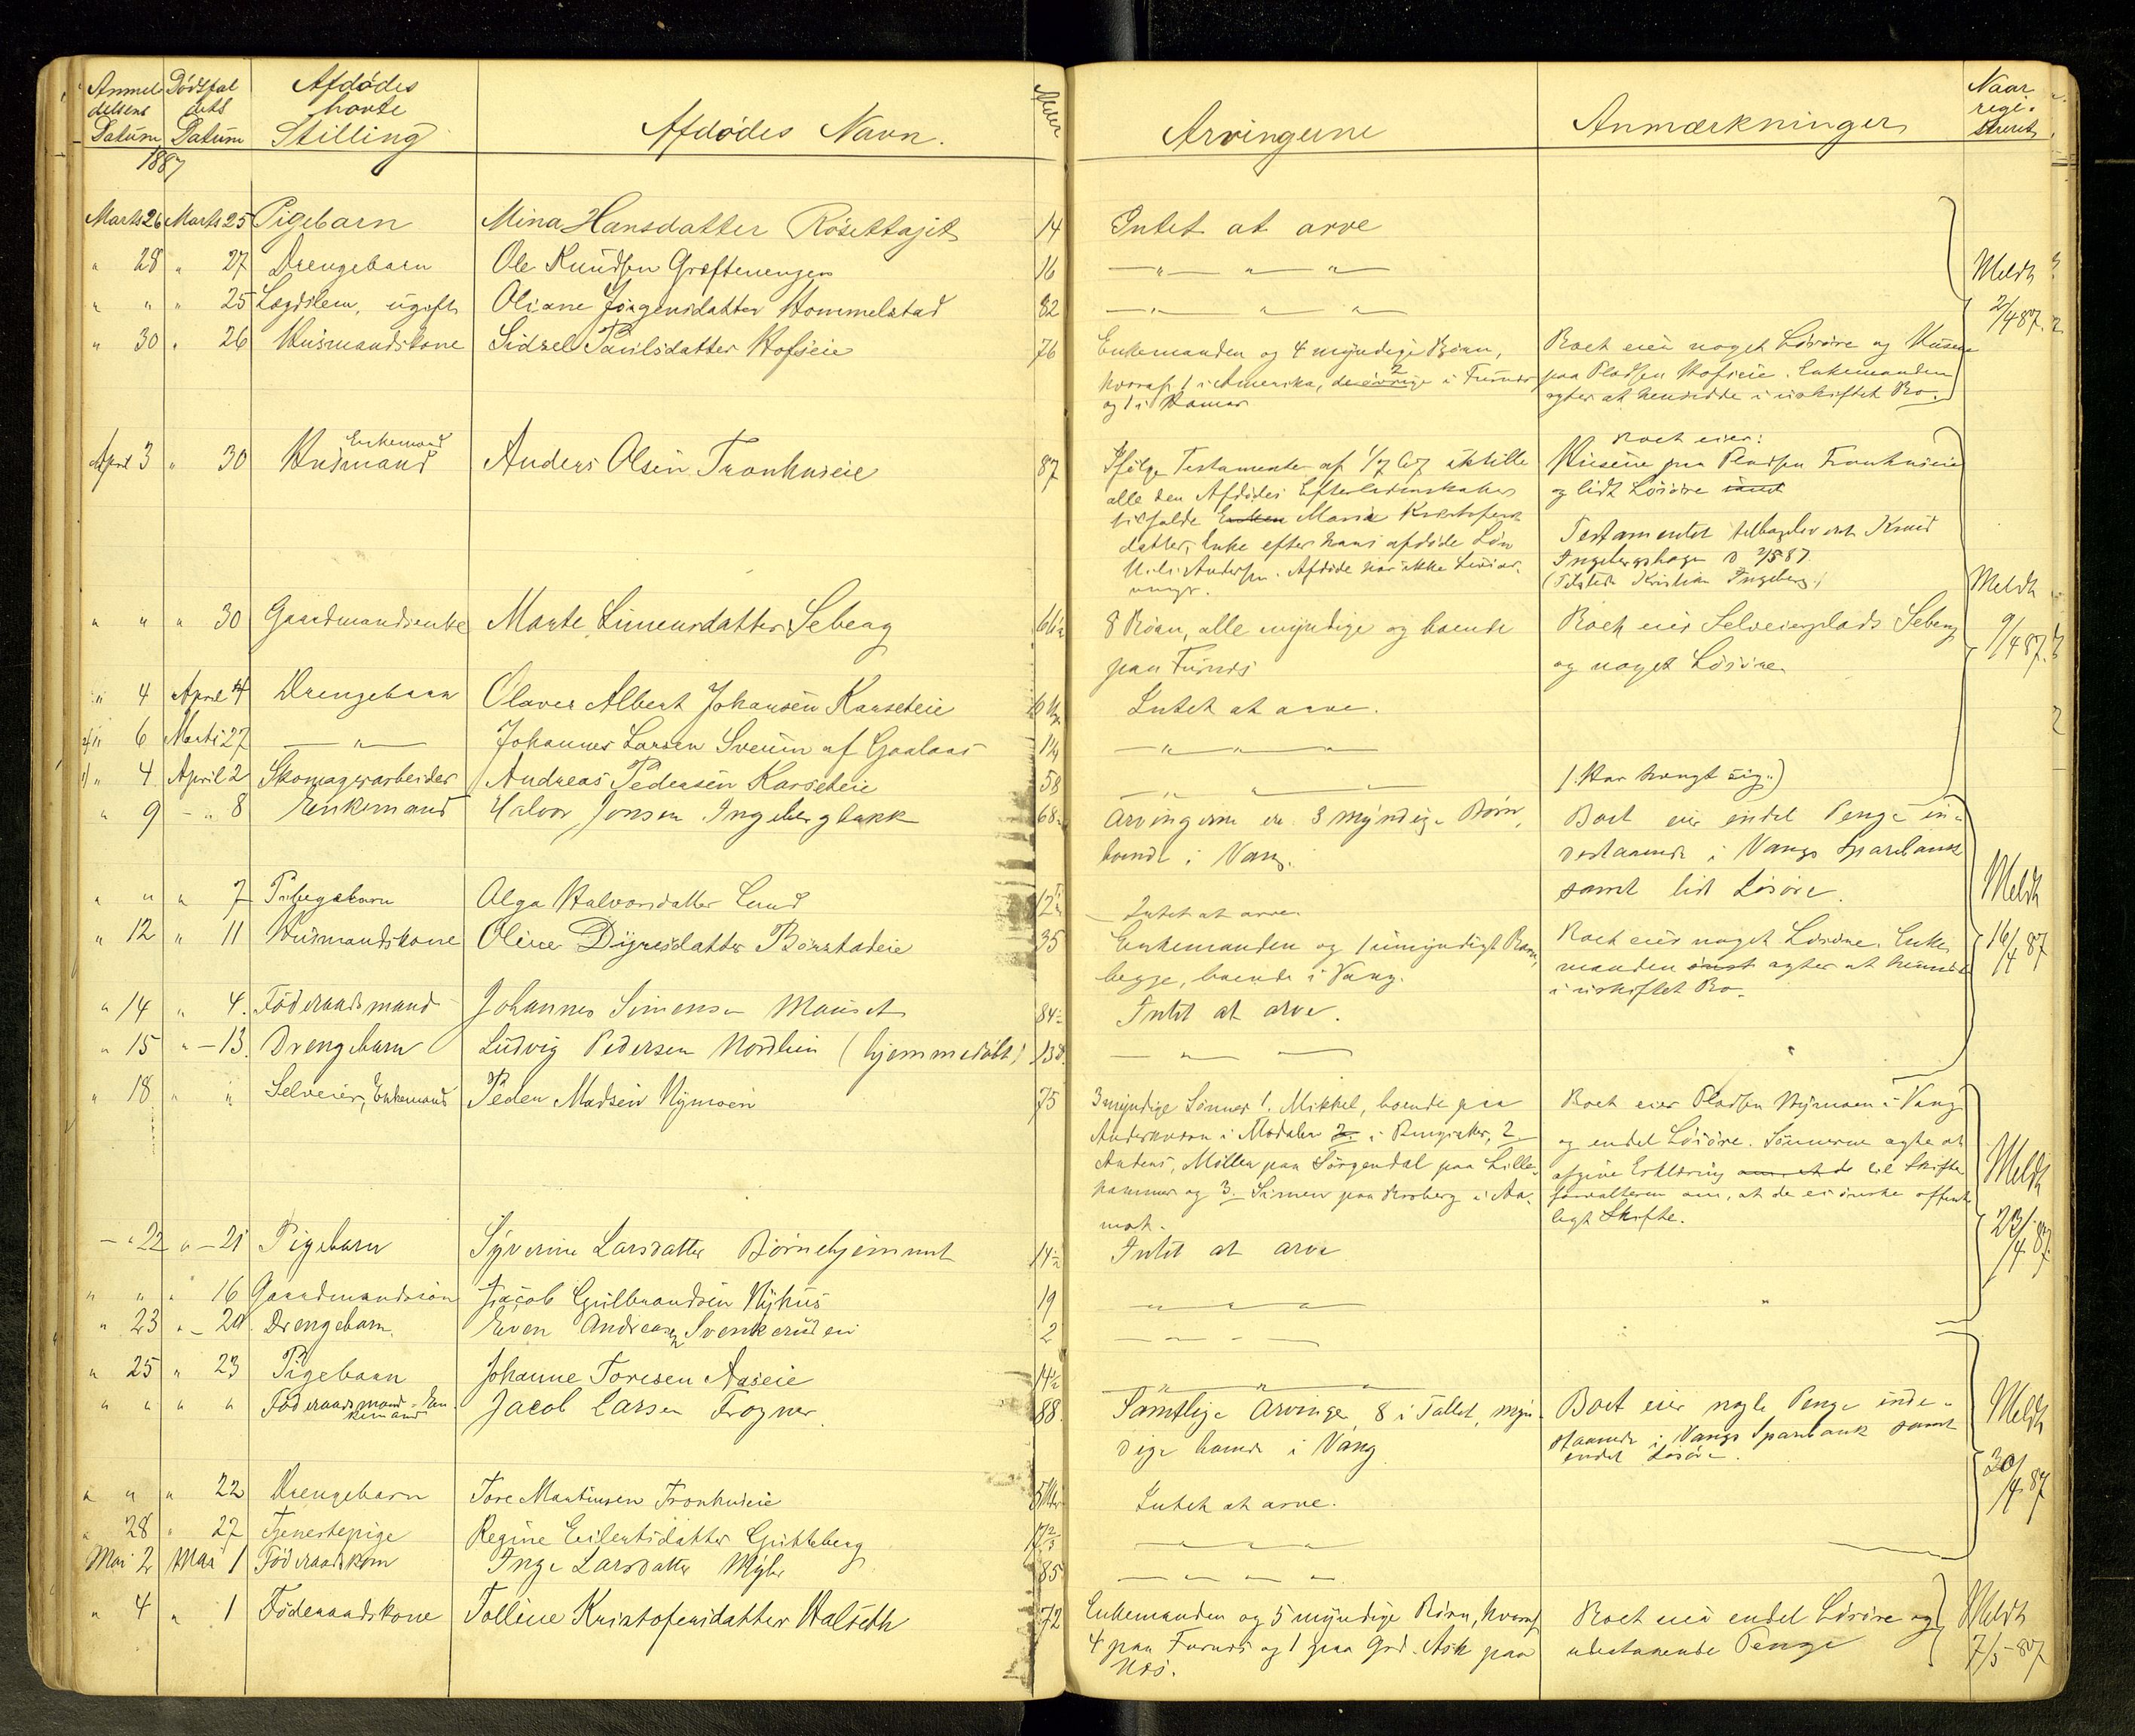 Anmel Dødsfal Afdødes Alder Naar
delsens dets havte regi-
Datum Datum Stilling Afdødes Navn. Arvingerne Anmærkninger streret
1887
Marts 26 Marts 25 Pigebarn Mina Hansdatter 14 Intet at arve
" 28 " 27 Drengebarn Ole Knudsen Grøftenengen 16 — " — " — " — Meldt
" " " 25 Lægdslem, ugift Oliane Jørgensdatter Hommelstad 82 — " — " — " — 2/4 87.
" 30 " 26 Husmandskone Sidsel Paulsdatter Hofseie 76 Enkemanden og 4 myndige Børn, Boet eier noget Løsøre og Husene
hvoraf 1 i Amerika, de øvrige 2 i Furnes paa Pladsen Hofseie. Enkemanden
og 1 i Hamar agter at hensidde i uskiftet Bo.
Enkemand Boet eier:
April 3 " 30 Husmand Anders Olsen Tronhuseie 87 Ifølge Testamente af skulle Husene paa Pladsen Tronhuseie
alle den Afdødes Efterladenskaber og lidt Løsøre samt
tilfalde Enken Maria Kristofers
datter, Enke efter hans afdøde Søn Testamentet tilbagelev. Knud
Nils Andersen. Afdøde har ikke Livsar- Ingebergshagen D 2/5 87.
vinger. Kristian Ingeberg) Meldt
" " " 30 Gaardmandsenke Marte Simensdatter Seberg 66 1/2 8 Børn, alle myndige og boende Boet eier Selveierplads Seberg 9/4 87.
paa Furnes og noget Løsøre
" 4 April 4 Drengebarn Olaves Albert Johansen Karseteie Intet at arve.
" 6 Marts 27 — " — Johannes Larsen Sveum af Gaalaas 1 1/4 — " — " — " —
" 4 April 2 Skomagerarbeider Andreas Pedersen Karseteie 58 — " — " — " — (Har hængt sig.)
" 9 - " 8 Enkemand Halvor Jonsen Ingebergbakk 68 Arvingerne er 3 myndige Børn, Boet eier endel Penge in-
boende i Vang. destaaende i Vangs Sparebank
samt lidt Løsøre.
" " " 7 Pigebarn Olga Halvorsdatter Lund 12 — Intet at arve. Meldt
" 12 " 11 Husmandskone Oline Dyresdatter Børstadeie 35 Enkemanden og 1 umyndigt Barn, Boet eier noget Løsøre. Enke 16/4 87
begge, boende i Vang. manden agter at hensidde
i uskiftet Bo.
" 14 " 4. Føderaadsmand Johannes Simensen Mauset 84 Intet at arve.
" 15 " - 13. Drengebarn Ludvig Pedersen Nordlien (hjemmedøbt) — " —
" 18 " " Selveier, Enkemand Peder Madsen Nymoen 75 3 myndige Sønner 1. Mikkel, boende paa Boet eier Pladsen Nymoen i Vang
i Ringsaker, 2 og endel Løsøre. Sønnerne agte at
Anders, Møller paa Sørgendal paa Lille- afgive Erklæring om at de til Skifte Meldt
hammer og 3. Simen paa i Aa- forvalteren om, at de ei ønske offent
mot. ligt Skifte. 23/4 87.
— " 22 " - 21 Pigebarn Syverine Larsdatter Børnehjemmet 14 1/2 Intet at arve
" " " 16 Gaardmandssøn Jacob Gulbrandsen Nyhus 19 — " — " — " —
" 23 " - 20 Drengebarn Even Andreasen Svenkerudei 2 — " — " —
" 25 " 23 Pigebarn Johanne Toresen Aaseie 14 1/2 — " — " — " —
" " " " Føderaadsmand - En- Jacob Larsen Frogner 88 Samtlige Arvinger 8 i Tallet, myn- Boet eier nogle Penge inde- Meldt
kemand dige boende i Vang staaende i Vangs Sparebank samt
endel Løsøre. 30/4 87
" " " 22 Drengebarn Tore Martinsen Tronhuseie Intet at arve.
" 28 " 27 Tjenestepige Regine Eilertsdatter Gritteberg 17 2/3 — " — " — " —
Mai 2 Mai 1 Føderaadskone Inge Larsdatter Myhr 85 — " — " — " —
" 4 " 1 Føderaadskone Telline Kristofersdatter Halseth 72 Enkemanden og 5 myndige Børn, hvoraf Boet eier endel Løsøre og Meldt
4 paa Furnes og 1 paa Grd. Ask paa udestaaende Penge 7/5 - 87
Næs.